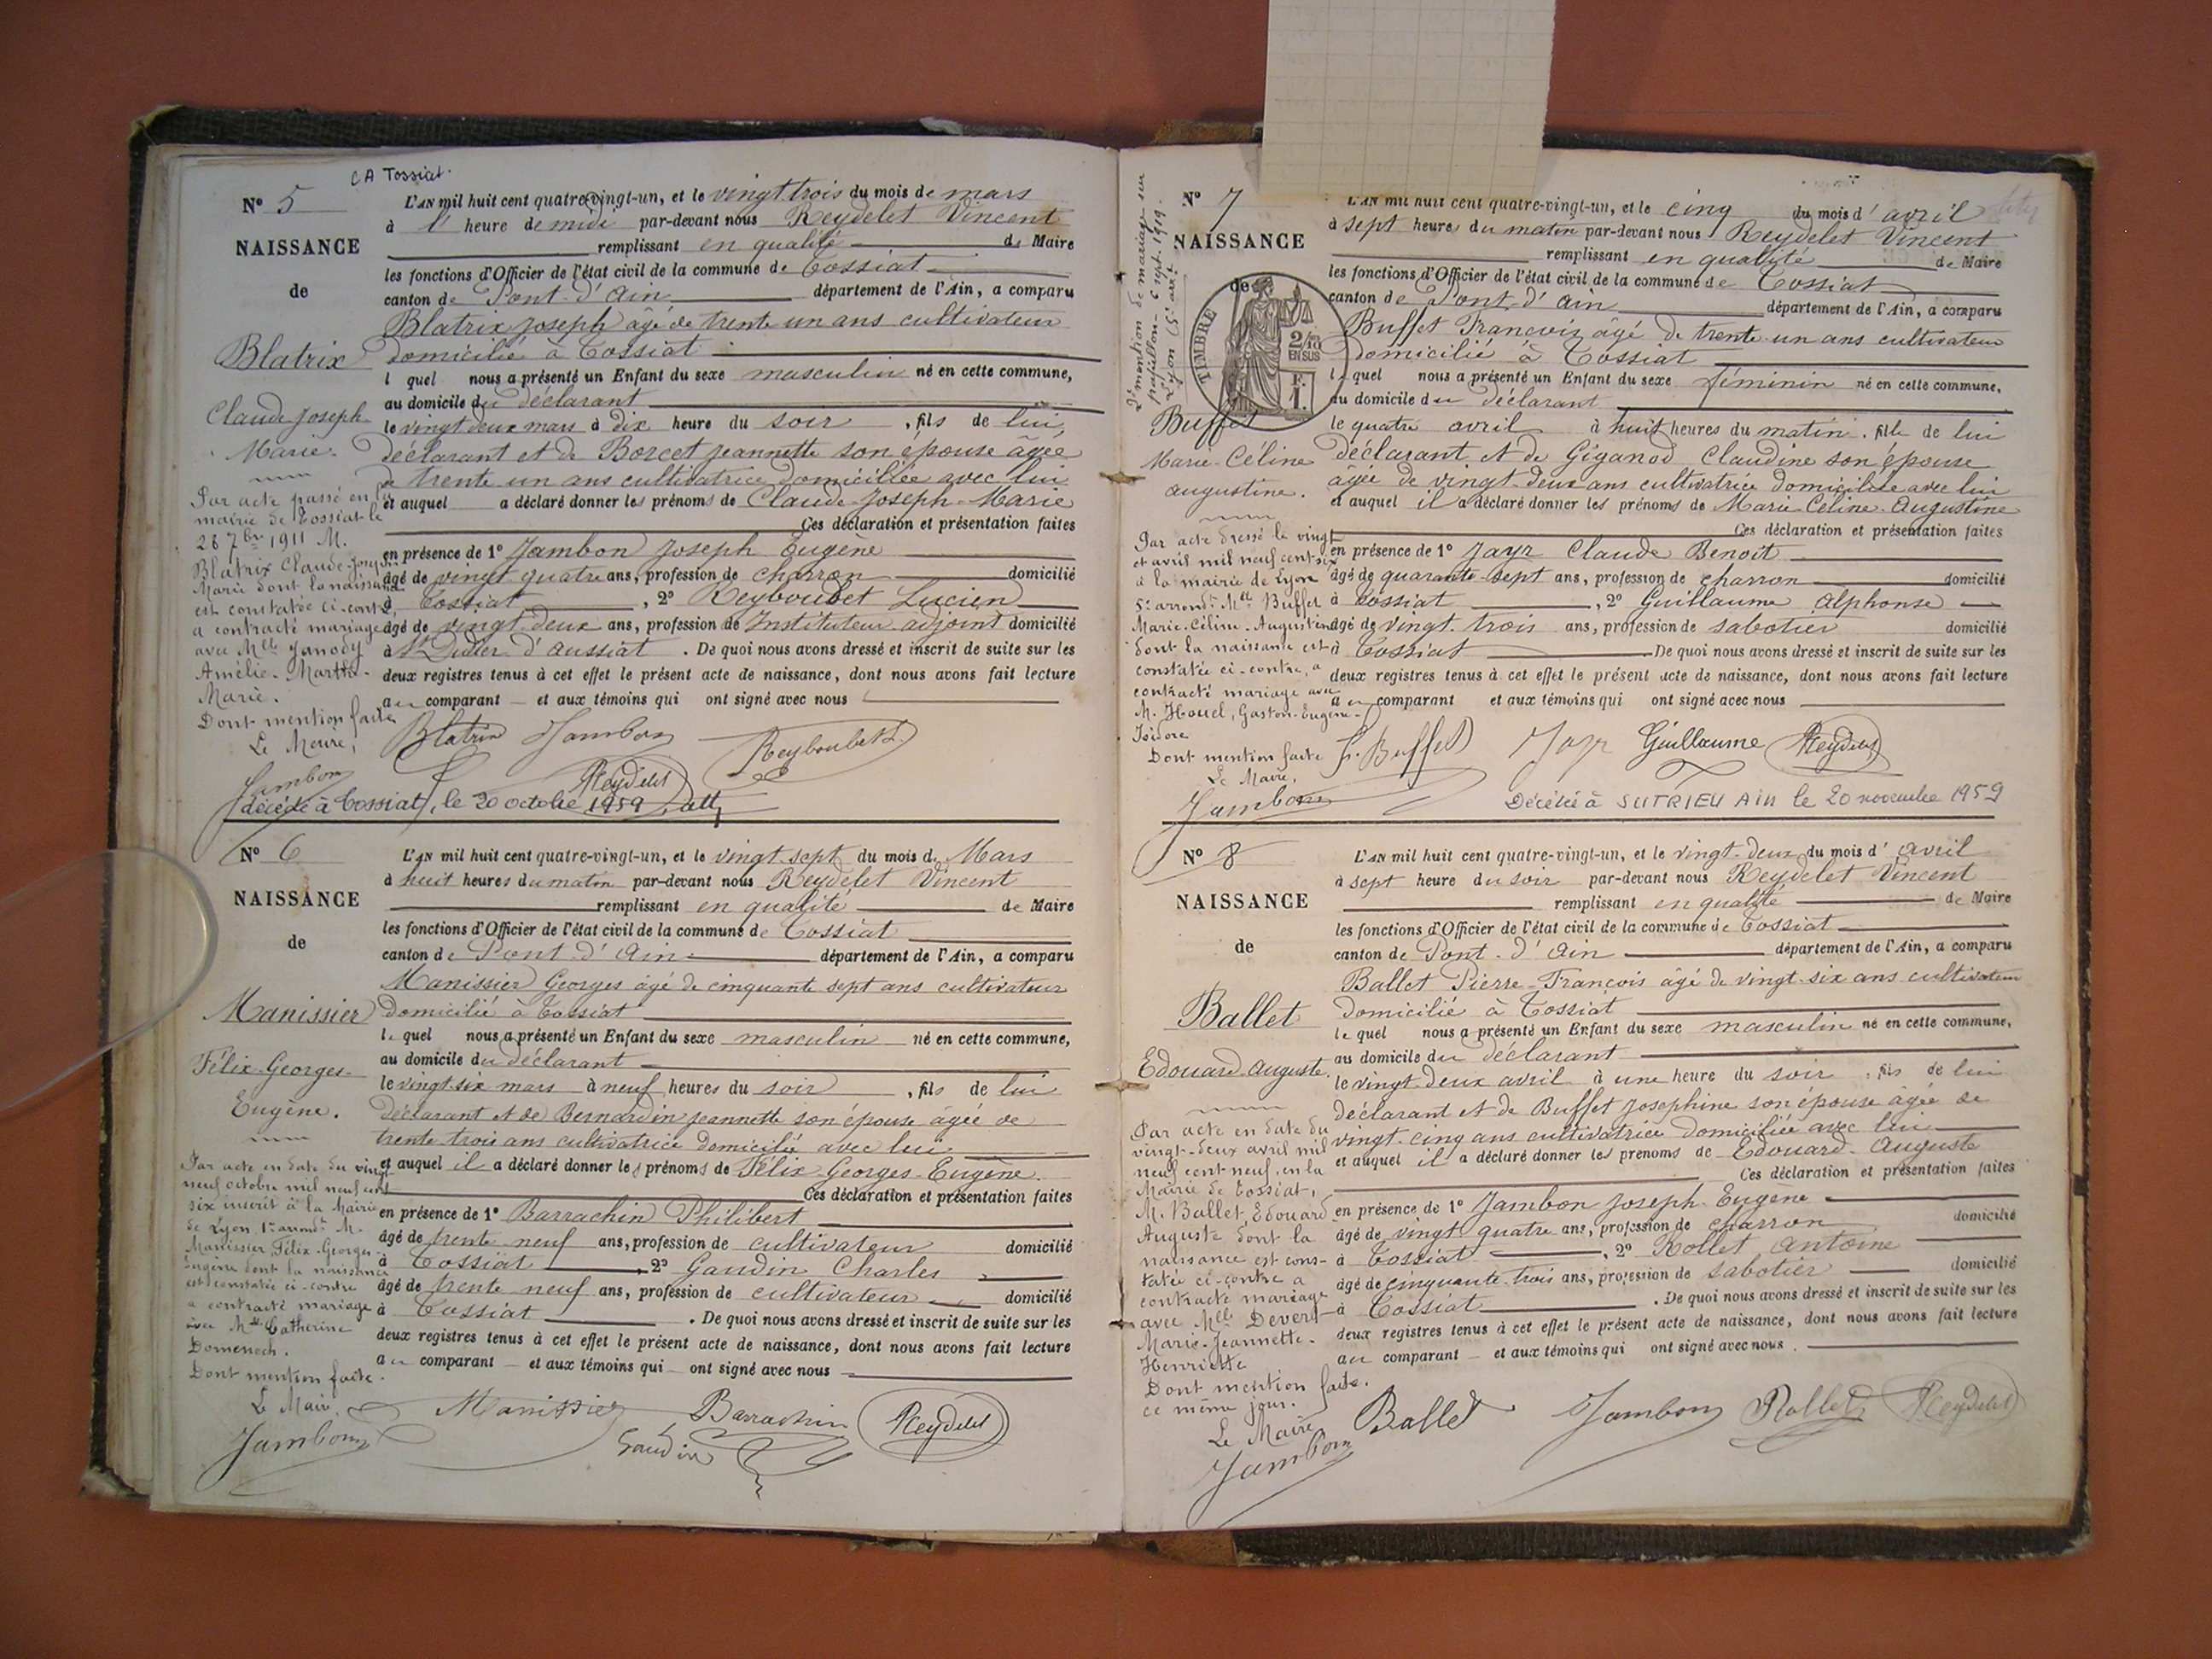 CA Tossiat.
N° 5
NAISSANCE
de
Blatrix
Claude Joseph
Marie.
L'AN mil huit cent quatre-vingt-un, et le vingt trois du mois de mars
à l' heure de midi par-devant nous Reydelet Vincent
remplissant en qualité de Maire
les fonctions d'Officier de l'état civil de la commune de Tossiat
canton de Pont-d'Ain département de l'Ain, a comparu
Blatrix Joseph âgé de trente un ans cultivateur
domicilié à Tossiat
lequel nous a présenté un Enfant du sexe masculin né en cette commune,
au domicile du déclarant
le vingt deux mars à dix heure du soir , fils de lui
déclarant et de Borcet Jeannette son épouse âgée
de trente un ans cultivatrice domiciliée avec lui
et auquel a déclaré donner les prénoms de Claude-Joseph-Marie
Ces déclaration et présentation faites
en présence de 1° Jambon Joseph Eugène
âgé de vingt quatre ans, profession de charron domicilié
à Tossiat , 2° Reyboubet Lucien
âgé de vingt deux ans, profession de Instituteur adjoint domicilié
à St Didier d'aussiat . De quoi nous avons dressé et inscrit de suite sur les
deux registres tenus à cet effet le présent acte de naissance, dont nous avons fait lecture
au comparant et aux témoins qui ont signé avec nous
Par acte passé en la
mairie de Tossiat le
28 7bre 1911 M.
Blatrix Claude-Joseph
Marie dont la naissance
est constatée ci-contre
a contracté mariage
avec Mlle Janody
Amélie-Marthe-
Marie.
Dont mention faite
Le Maire,
Jambon
Blatrix Jambon Reyboubet L
Reydelet
décédé à Tossiat, le 20 octobre 1959
N° 6
NAISSANCE
de
Manissier
Félix-Georges-
Eugène.
L'AN mil huit cent quatre-vingt-un, et le vingt sept du mois de Mars
à huit heures du matin par-devant nous Reydelet Vincent
remplissant en qualité de Maire
les fonctions d'Officier de l'état civil de la commune de Tossiat
canton de Pont-d'Ain département de l'Ain, a comparu
Manissier Georges âgé de cinquante sept ans cultivateur
domicilié à Tossiat
lequel nous a présenté un Enfant du sexe masculin né en cette commune,
au domicile du déclarant
le vingt six mars à neuf heures du soir , fils de lui
déclarant et de Bernardin Jeannette son épouse âgée de
trente trois ans cultivatrice domicilié avec lui
et auquel il a déclaré donner les prénoms de Félix-Georges-Eugène.
Ces déclaration et présentation faites
en présence de 1° Barrachin Philibert
âgé de trente neuf ans, profession de cultivateur domicilié
à Tossiat , 2° Gaudin Charles
âgé de trente neuf ans, profession de cultivateur domicilié
à Tossiat . De quoi nous avons dressé et inscrit de suite sur les
deux registres tenus à cet effet le présent acte de naissance, dont nous avons fait lecture
au comparant et aux témoins qui ont signé avec nous
Par acte en date du vingt
neuf octobre mil neuf cent
six inscrit à la Mairie
de Lyon 1er arrondt M.
Manissier Félix-Georges-
Eugène dont la naissance
est constatée ci-contre
a contracté mariage
avec Mlle Catherine
Domenech.
Dont mention faite.
Le Maire,
Jambon
Manissier Barrachin Reydelet
Gaudin
N° 7
NAISSANCE
de
TIMBRE
2/10 EN SUS
F. 1.
Buffet
Marie-Céline
Augustine.
L'AN mil huit cent quatre-vingt-un, et le cinq du mois d'avril
à sept heures du matin par-devant nous Reydelet Vincent
remplissant en qualité de Maire
les fonctions d'Officier de l'état civil de la commune de Tossiat
canton de Pont-d'Ain département de l'Ain, a comparu
Buffet François âgé de trente-un ans cultivateur
domicilié à Tossiat
lequel nous a présenté un Enfant du sexe féminin né en cette commune,
au domicile du déclarant
le quatre avril à huit heures du matin, fille de lui
déclarant et de Giganod Claudine son épouse
âgée de vingt-deux ans cultivatrice domiciliée avec lui
et auquel il a déclaré donner les prénoms de Marie-Céline-Augustine
Ces déclaration et présentation faites
en présence de 1° Jayr Claude Benoit
âgé de quarante-sept ans, profession de charron domicilié
à Tossiat , 2° Guillaume Alphonse
âgé de vingt-trois ans, profession de sabotier domicilié
à Tossiat . De quoi nous avons dressé et inscrit de suite sur les
deux registres tenus à cet effet le présent acte de naissance, dont nous avons fait lecture
au comparant et aux témoins qui ont signé avec nous
Par acte dressé le vingt
et avril mil neuf cent six
à la mairie de Lyon
5e arrondt Mlle Buffet
Marie-Céline-Augustine
dont la naissance est
constatée ci-contre, a
contracté mariage avec
M. Houel, Gaston-Eugène-
Isidore
Dont mention faite
Le Maire,
Jambon
F. Buffet Jayr Guillaume Reydelet
Décédée à SUTRIEU AIN le 20 novembre 1959
N° 8
NAISSANCE
de
Ballet
Edouard-Auguste.
L'AN mil huit cent quatre-vingt-un, et le vingt-deux du mois d'avril
à sept heure du soir par-devant nous Reydelet Vincent
remplissant en qualité de Maire
les fonctions d'Officier de l'état civil de la commune de Tossiat
canton de Pont-d'Ain département de l'Ain, a comparu
Ballet Pierre-François âgé de vingt-six ans cultivateur
domicilié à Tossiat
lequel nous a présenté un Enfant du sexe masculin né en cette commune,
au domicile du déclarant
le vingt-deux avril à une heure du soir , fils de lui
déclarant et de Buffet Josephine son épouse âgée de
vingt-cinq ans cultivatrice domiciliée avec lui
et auquel il a déclaré donner les prénoms de Edouard-Auguste
Ces déclaration et présentation faites
en présence de 1° Jambon Joseph-Eugene
âgé de vingt quatre ans, profession de charron domicilié
à Tossiat , 2° Rollet Antoine
âgé de cinquante-trois ans, profession de sabotier domicilié
à Tossiat . De quoi nous avons dressé et inscrit de suite sur les
deux registres tenus à cet effet le présent acte de naissance, dont nous avons fait lecture
au comparant et aux témoins qui ont signé avec nous
Par acte en date du
vingt-deux avril mil
neuf cent neuf, en la
Mairie de Tossiat,
M. Ballet, Edouard
Auguste dont la
naissance est cons-
tatée ci-contre a
contracté mariage
avec Mlle Devert
Marie-Jeannette-
Henriette
Dont mention faite.
ce même jour.
Le Maire
Jambon
Ballet Jambon Rollet Reydelet